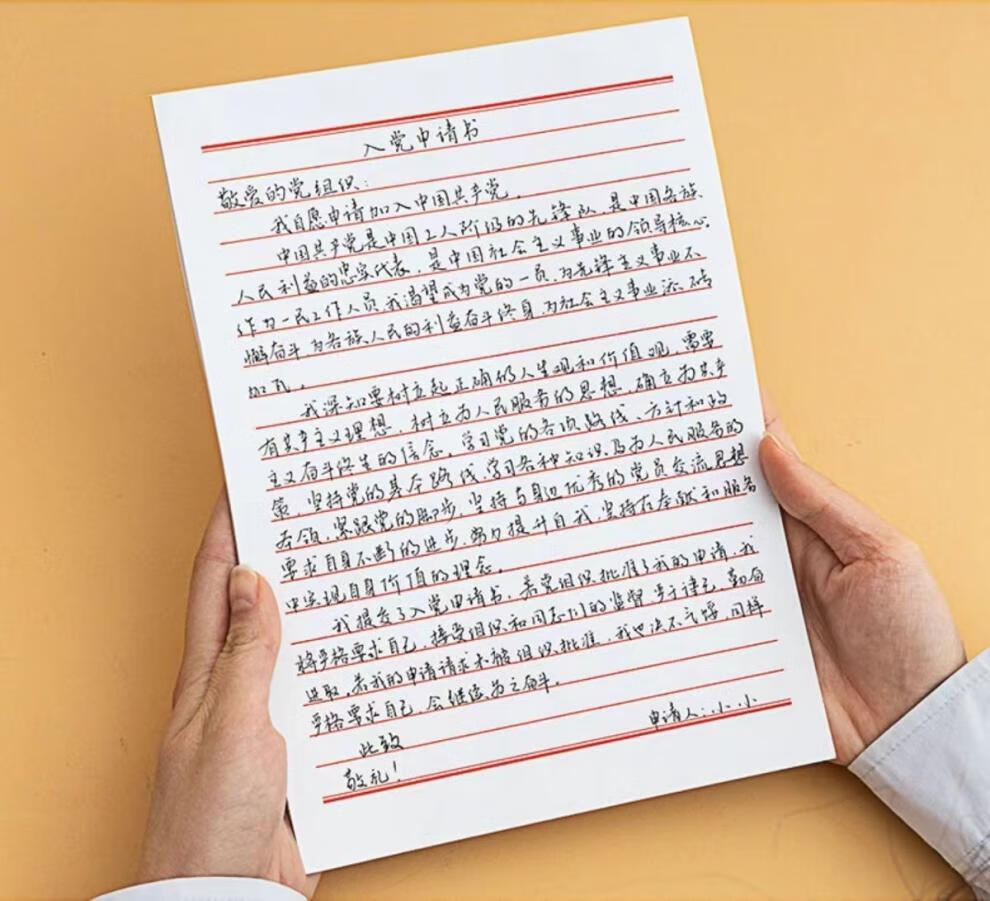 入党申请书
敬爱的党组织：
我自愿申请加入中国共产党。
中国共产党是中国工人阶级的先锋队，是中国各族
人民利益的忠实代表，是中国社会主义事业的领导核心。
作为一民工作人员，我渴望成为党的一员，为先锋主义事业不
懈奋斗，为各族人民的利益奋斗终身，为社会主义事业添砖
加瓦。
我深知要树立起正确的人生观和价值观，需要
有共产主义理想，树立为人民服务的思想，确立为共产
主义奋斗终生的信念，学习党的各项路线、方针和政
策，坚持党的基本路线，学习各种知识及为人民服务的
本领，紧跟党的脚步，坚持与身边优秀的党员交流思想
要求自身不断的进步，努力提升自我，坚持在奉献和服务
中实现自身价值的理念。
我提交了入党申请书，若党组织批准了我的申请，我
将严格要求自己，接受组织和同志们的监督，严于律己，勤奋
进取，若我的申请请求未被组织批准，我也决不气馁，同样
严格要求自己，会继续为之奋斗。
此致
申请人：小小
敬礼！